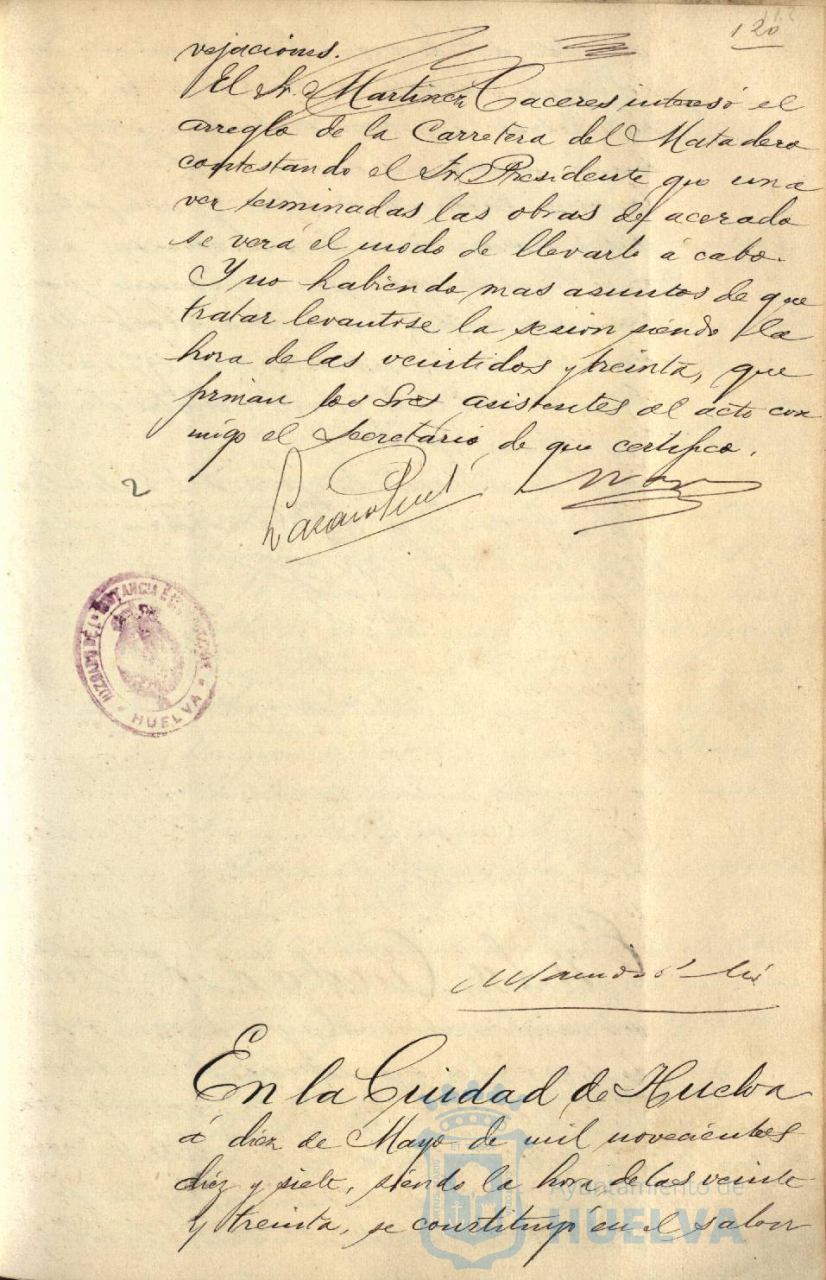 120
vejaciones.
El Sr. Martinez Caceres interesó el
arreglo de la Carretera del Matadero
contestando el Sr. Presidente que una
vez terminadas las obras de acerado
se verá el modo de llevarlo á cabo.
Y no habiendo mas asuntos de que
tratar levantose la sesion siendo la
hora de las veintidos y treinta, que
firman los Sres asistentes al acto con
migo el Secretário, de que certifico.
2
HUELVA
En la Ciudad de Huelva
á diéz de Mayo de mil novecientos
diéz y siete, siéndo la hora de las veinte
y treinta, se constituyó en el salon
Ayuntamiento de
HUELVA